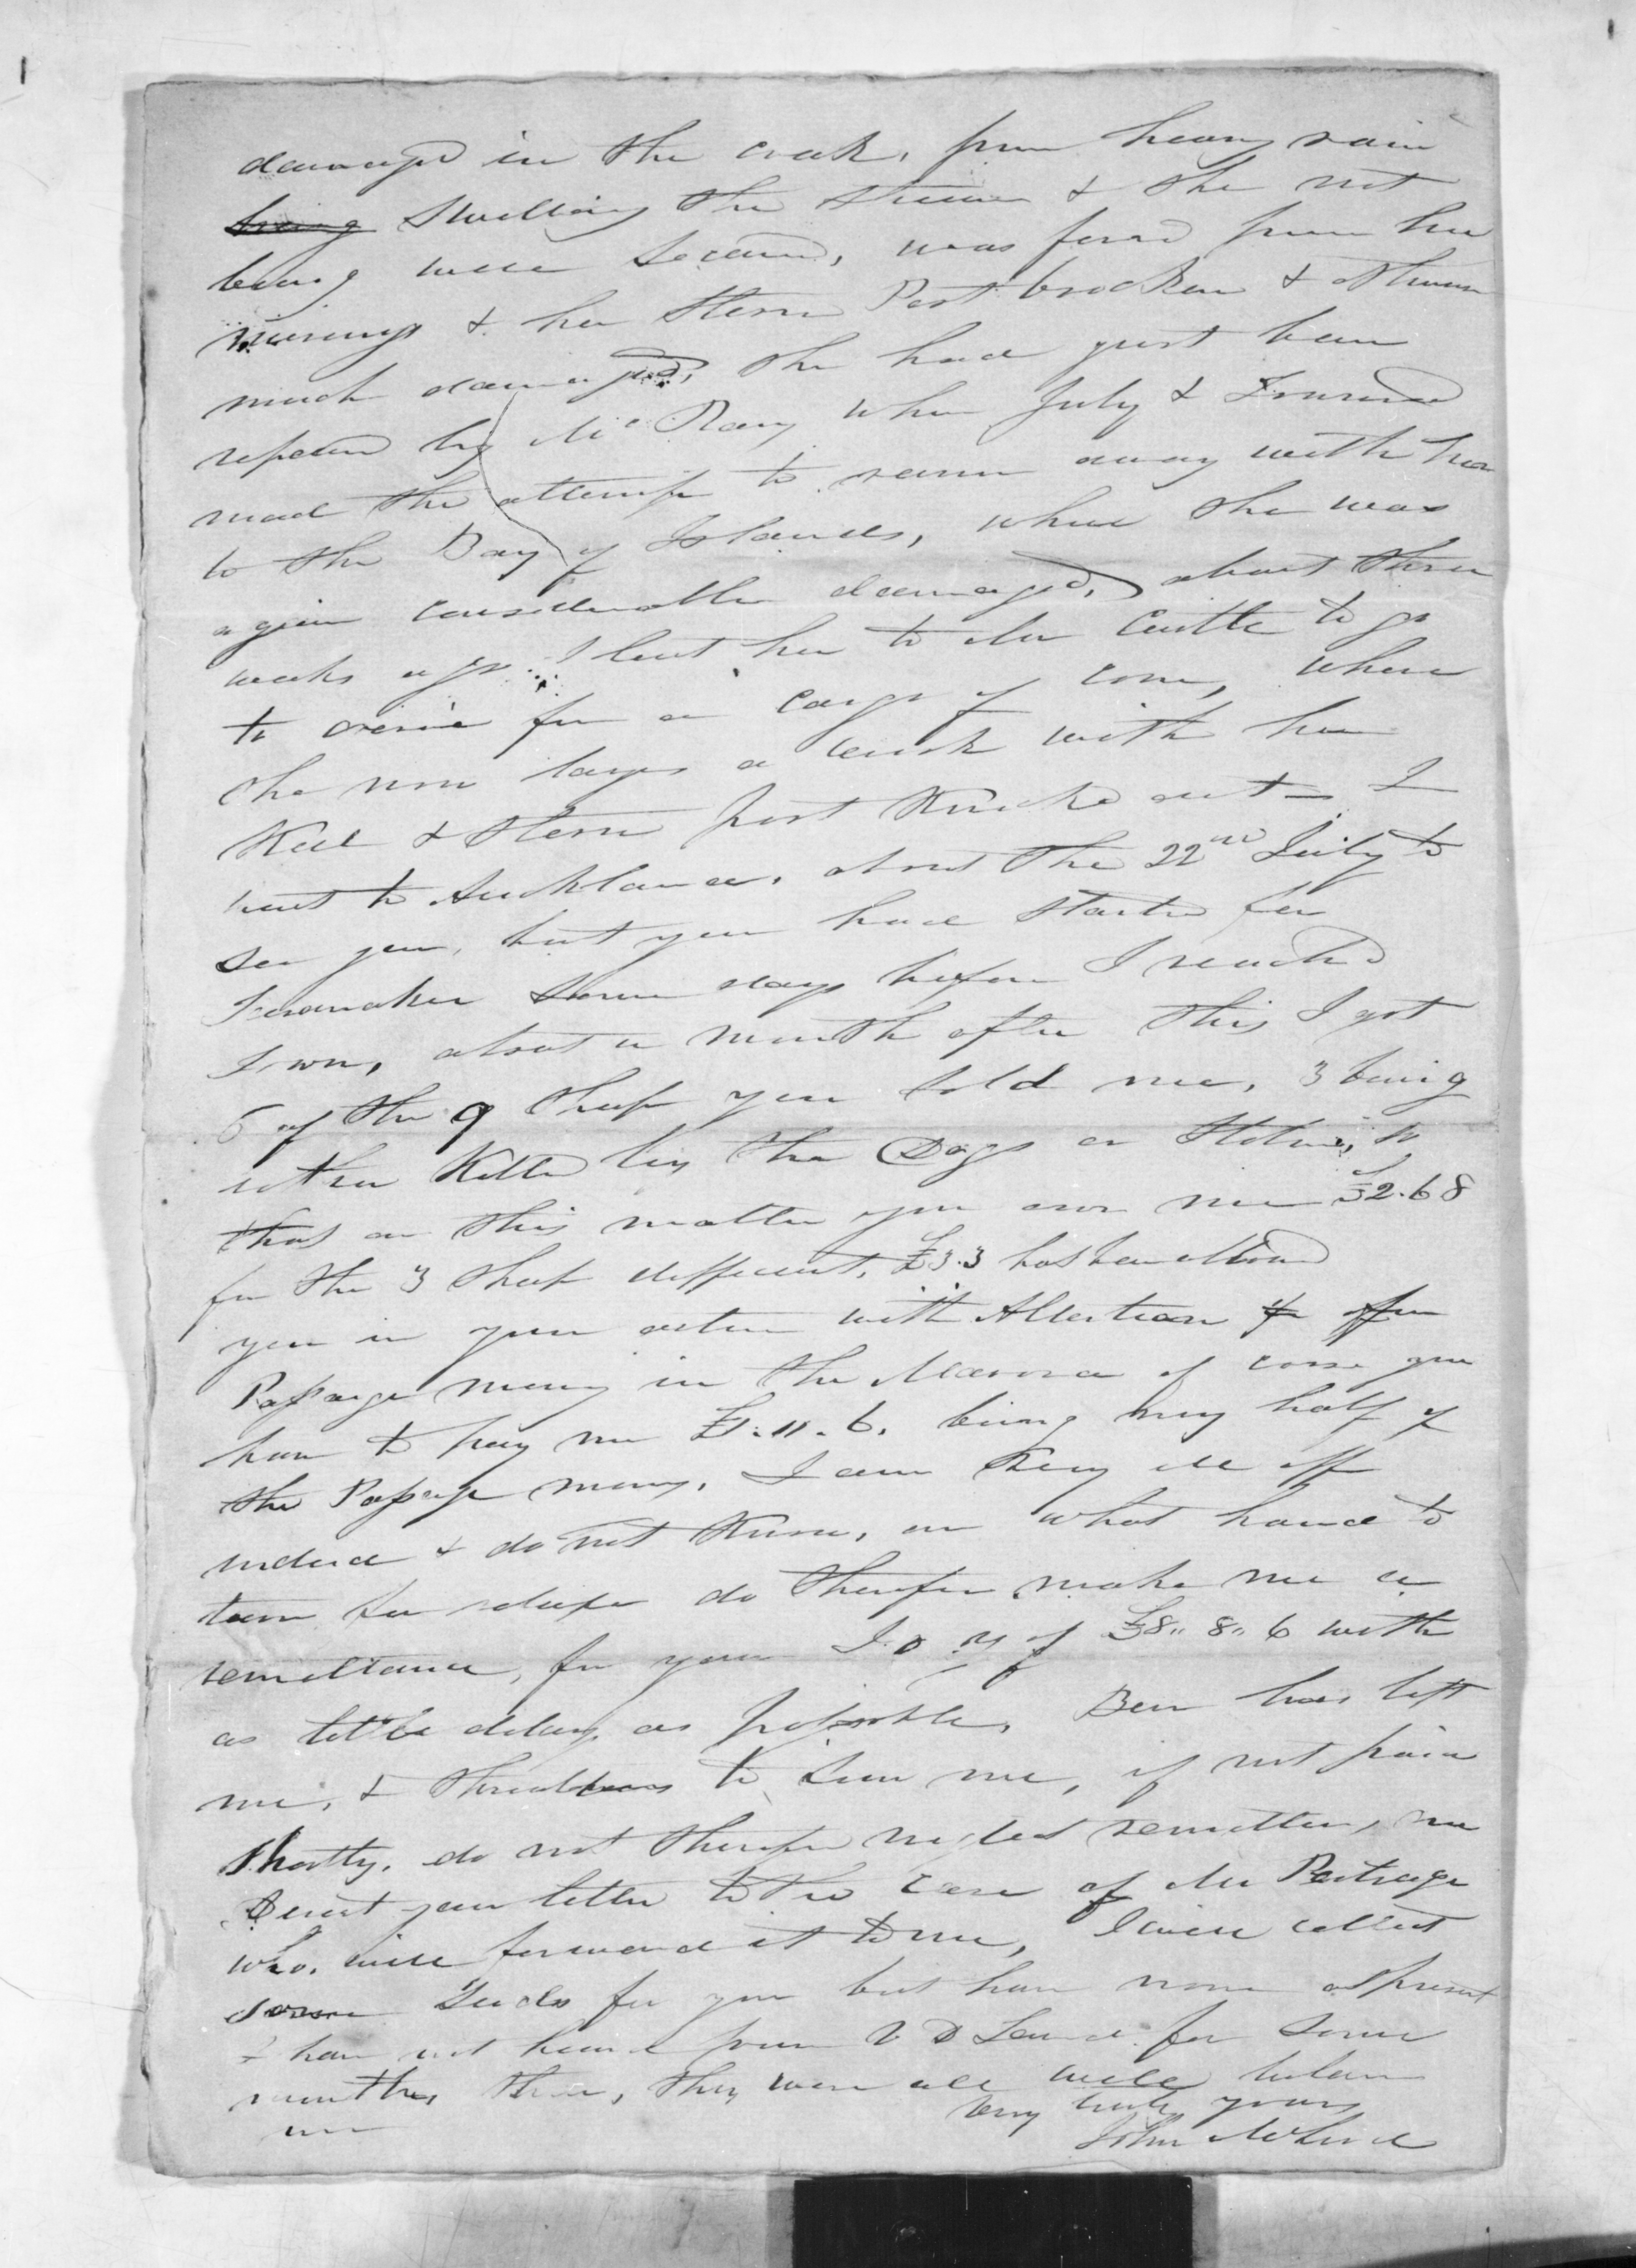 damaged in the creek, from heavy rain
being swelling the stream & she not
being well secured, was forced from her
moorings & her Stern Post broken & otherwise
much damaged, She had just been
repaired by McRay when July &
made the attempt to runn away with her
to the Bay of Islands, where she was
again considerable damaged, about three
weeks ago I lent her to Mr to go
to for a cargo of corn, where
she now layes a wreck with her
Keel & Stern post Knocked out – I
went to Auckland, about the 22nd July to
see you, but you had started for
Taranakie some days before I reached
Town, about a month after this I got
6 of the 9 Sheep you sold me, 3 being
either Killed by the Dogs or Stolen, so
that on this matter you owe me £2.6 8
for the 3 Sheep difficient, £3.3 has been allowed
you in your with Albertson for
Passage money in the of corse you
have to pay me £1.11.6. being my half of
the Passage money. I am Very ill off
indeed & do not Know, on what hand to
turn for do therefore make me a
remittance, for your I.O.U of £8,, 8,, 6 with
as little delay as possoble, Ben has left
me, & threatens to sue me, if not paid
shortly. do not therefore neglect remitten, me
Derict your letter to the care of Mr Partrage
who. will forward it to me, I will collect
some Seeds for you but have none at present
I have not heard from V D Land for some
months, they were all well
Very truly yours
John